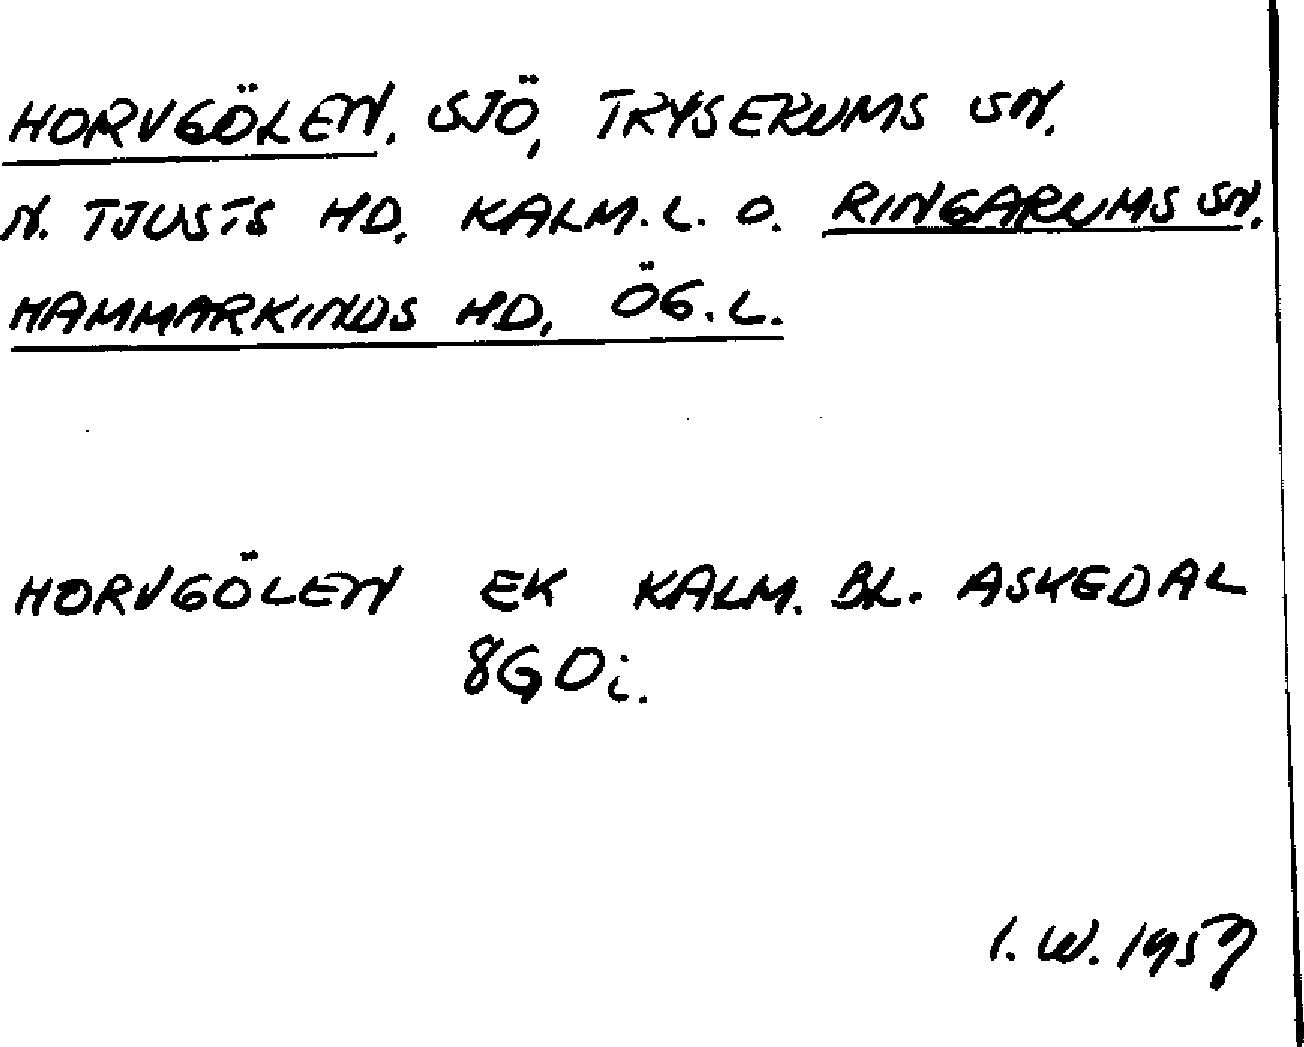 HORVGÖLEN. SJÖ, TRYSERUMS SN.
N. TJUSTS HD. KALM. L. O. RINGARUMS SN.
HAMMARKINDS HD, ÖG. L.
HORVGÖLEN EK KALM. BL. ASKEDAL
8G Di.
I. W. 1957